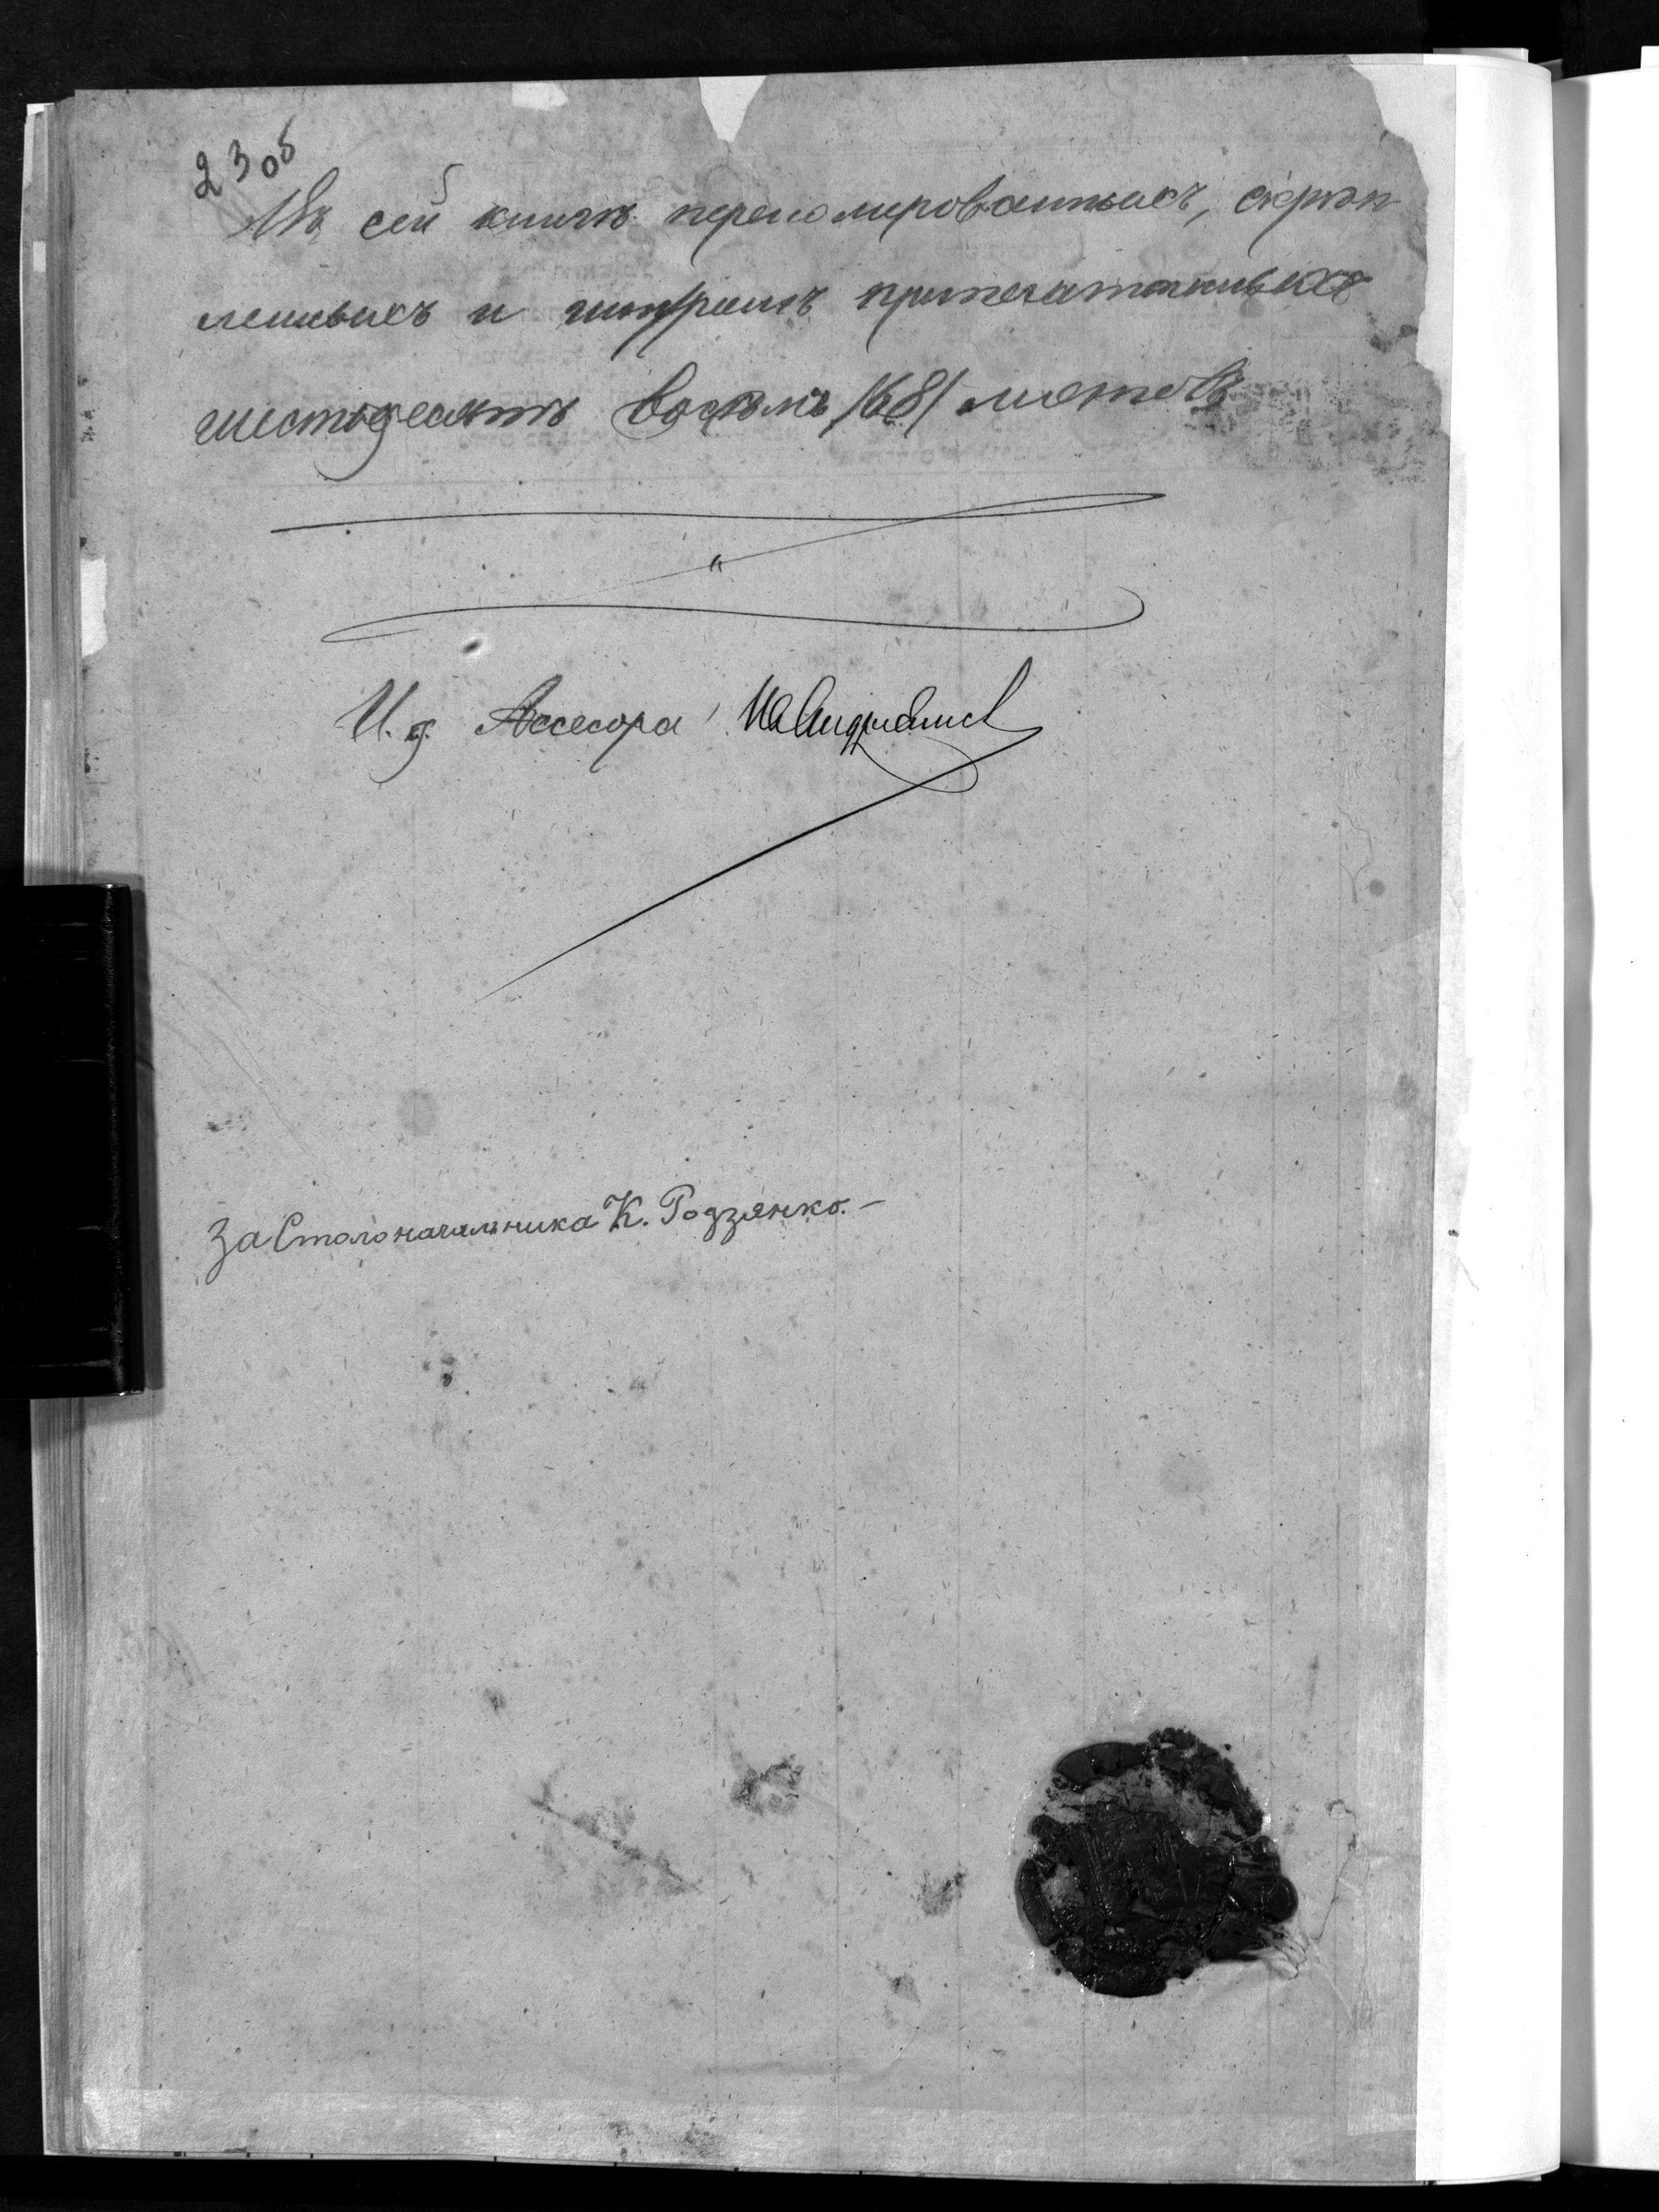 23 об
Въ сей книгѣ перенумерованныхъ, скрѣп
ленныхъ и шнуромъ припечатанныхъ
шестьдесятъ восемь /68/ листовъ
И. д. Ассесора
За Столоначальника К. Родзянко. –